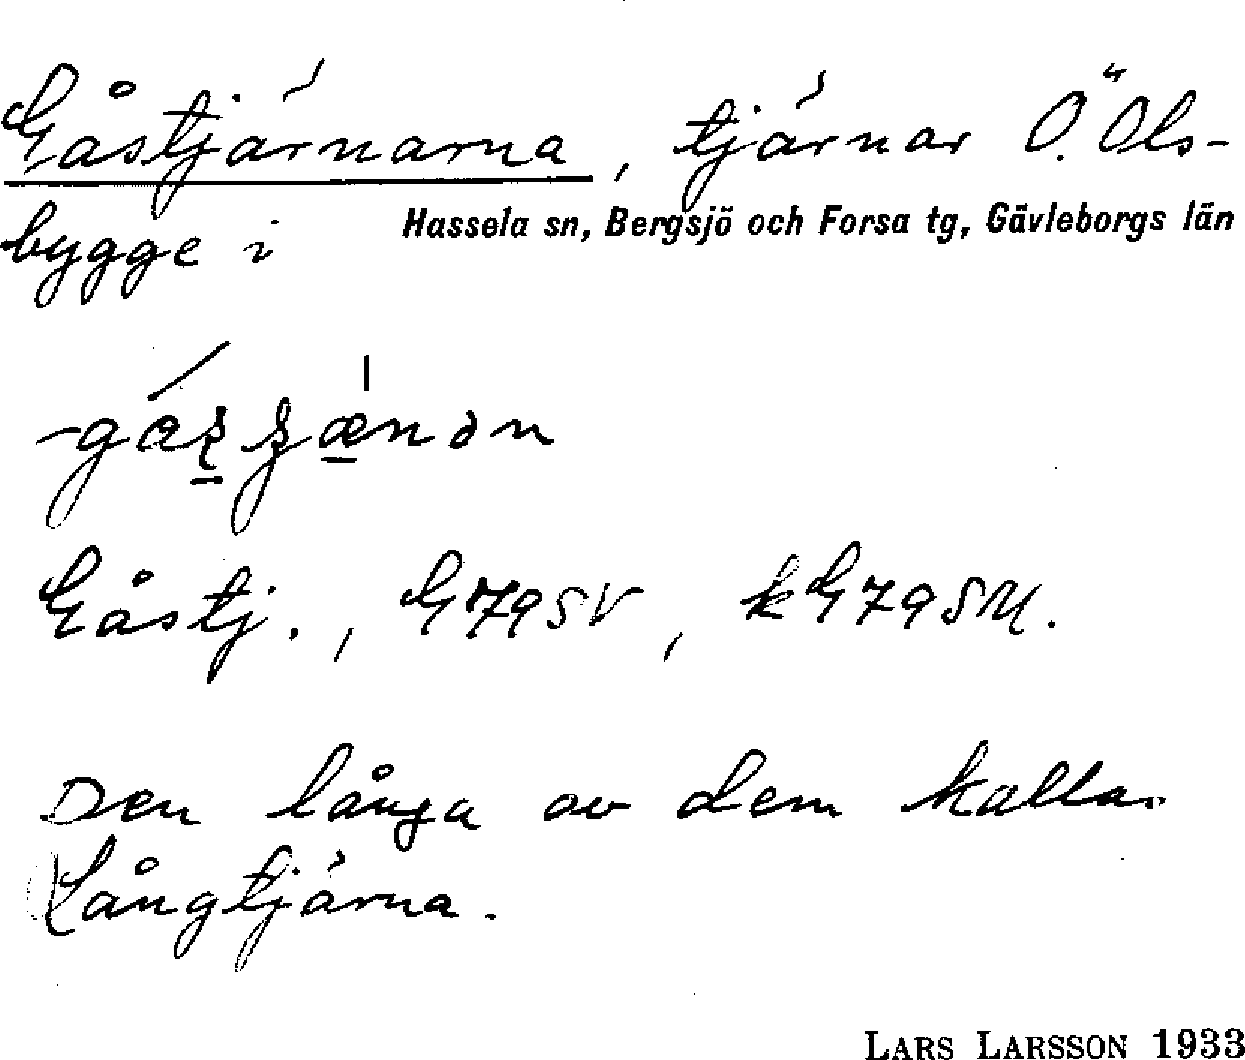 Gåstjärnarna, tjärnar O. Öls-
bygge i Hassela sn, Bergsjö och Forsa tg, Gävleborgs län
Gåstj., G79SV, kG79SM.
Den långa av dem kallas
Långtjärna.
LARS LARSSON 1933